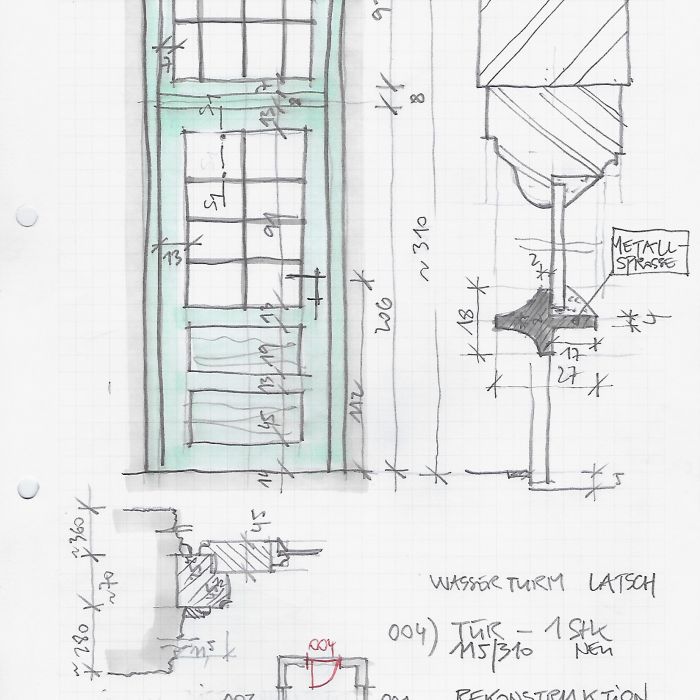 7
7
8
S1
13
8
91
S1
13
206
~310
13
19
13
112
45
14
METALL-
SPROSSE
2
18
17
27
5
~360
45
~70
~280
WASSERTURM LATSCH
004) TÜR - 1 Stk
115/310 NEU
004
REKONSTRUKTION